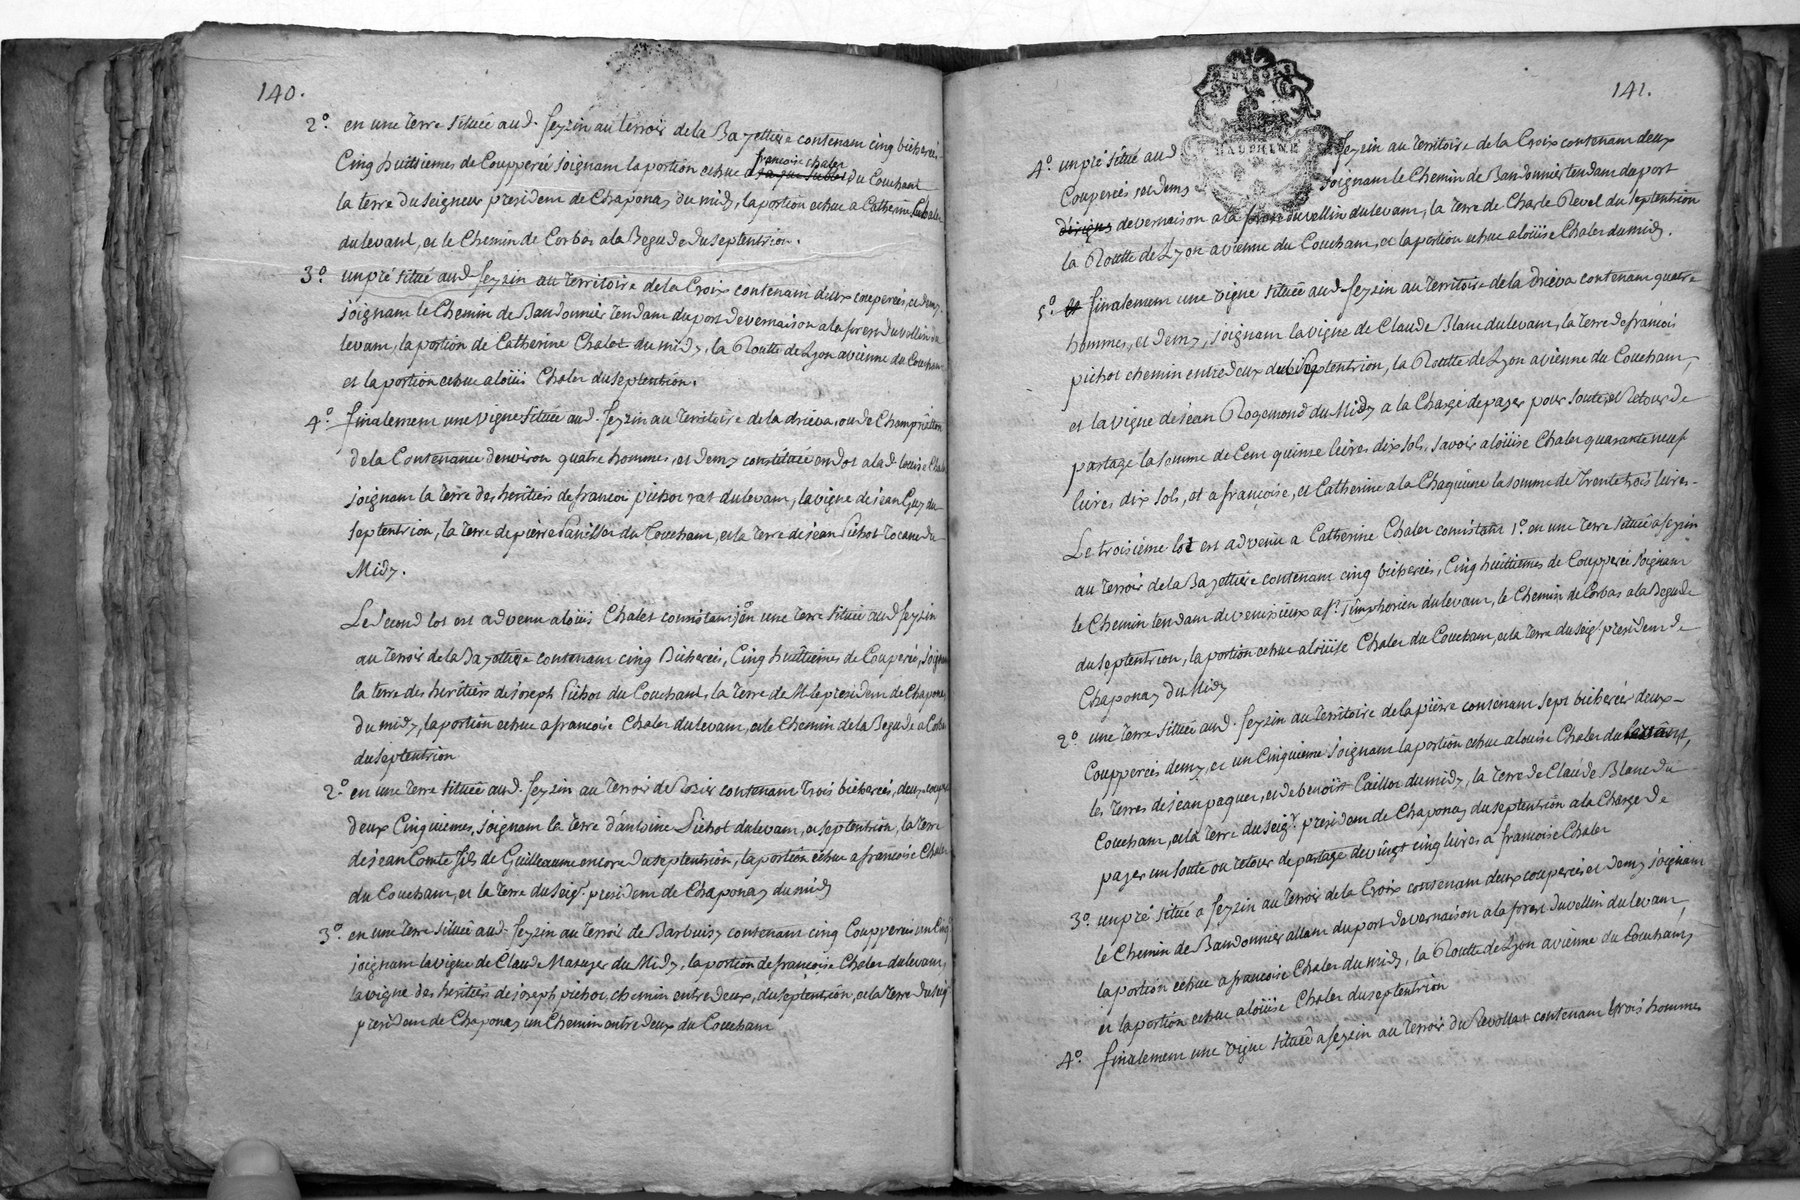 140.
2.° en une terre située aud. feyzin au terroir de la Bazettiere contenam cinq bicherées
Cinq huittiemes de Coupperée joignam la portion echue a françoise chalet du Couchant
la terre du seigneur presidem de Chaponay du midy, la portion echue a Catherine Chalet
du levant, et le Chemin de Corbas a la Begude du septentrion.
3.° un pré situé aud. feyzin au territoire de la Croix contenam deux couperées, et demy,
joignam le Chemin de Bandonnier tendam du port de vernaison a la forest du vellin du
levam, la portion de Catherine Chalet du midy, la Routte de Lyon a vienne du Coucham
et la portion echue a loüis Chalet du septentrion.
4.° finalement une vigne située aud. feyzin au territoire de la drieva, ou de
de la Contenance denviron quatre hommes, et demy constituée en dot a lad. louise Chalet
joignam la terre des heritiers de françois pichot rat du levam, la vigne de jean Guy du
septentrion, la terre de pierre du Coucham, et la terre de jean Pichot du
Midy.
Le second lot est advenu a loüis Chalet consistam 1.° en une terre située aud. feyzin
au terroir de la Bazettiere contenam cinq Bicherées, Cinq huittiemes de Couperée, joignam
la terre des heritiers de joseph Pichot du Couchant, la terre de M. le presidem de Chaponay
du midy, la portion echue a francoise Chalet du levam, et le Chemin de la Begude a Corbas
du septentrion
2.° en une terre située aud. feyzin au terroir de Rosier contenam trois bicherées, deux coupées
deux Cinquiemes, joignam la terre d'antoine Pichot du levam, et septentrion, la terre
de jean Comte fils de Guilleaume encore du septentrion, la portion echue a francoise Chalet
du Coucham, et la terre du seig.r presidem de Chaponay du midy
3.° en une terre située aud. feyzin au terroir de Barbuisy contenam cinq Coupperées un Cinq.
joignam la vigne de Claude Mazuyer du Midy, la portion de françoise Chalet du levam,
la vigne des heritiers de joseph pichot, chemin entre deux, du septentrion, et la terre du seig.
presidem de Chaponay un Chemin entre deux du Coucham
141.
DAUPHINE
4.° un pré situé aud feyzin au territoire de la Croix contenam deux
Couperées et demy joignam le Chemin de Bandonnier tendam du port
de vernaison a la forest du vellin du levam, la terre de Charle Revel du septentrion
la Routte de Lyon a vienne du Coucham, et la portion echue a loüise Chalet du midy.
5.° finalement une vigne située aud. feyzin au territoire de la drieva contenam quatre
hommes, et demy, joignam la vigne de Claude Blanc du levam, la terre de francois
pichot chemin entre deux du septentrion, la Routte de Lyon a vienne du Coucham,
et la vigne de jean Rozemond du Midy a la Charge de payer pour soute, et Retour de
partage la somme de Cent quinse livres dix sols, savoir a loüise Chalet quarante neuf
livres dix sols, et a françoise, et Catherine a la Chaquune la somme de trente trois livres.
Le troisième lot est advenu a Catherine Chalet consistant 1.° en une terre située a feyzin
au terroir de la Bazettiere contenam cinq bicherées, Cinq huittiemes de Coupperée joignam
le Chemin tendam de venissieux a s.t simphorien du levam, le Chemin de Corbas a la Begude
du septentrion, la portion echue a loüise Chalet du Coucham, et la terre du seig.r presidem de
Chaponay du Midy
2.° une terre située aud. feyzin au territoire de la pierre contenam sept bicherées deux
Coupperées demy, et un Cinquieme joignam la portion echue a louise Chalet du
les terres de jean paquet, et de benoist Caillot du midy, la terre de Claude Blanc du
Coucham, et la terre du seig.r presidem de Chaponay du septentrion a la Charge de
payer un soute ou retour de partage de vingt cinq livres a francoise Chalet
3.° un pré situé a feyzin au terroir de la Croix contenam deux couperées et demy joignam
le Chemin de Bandonnier allam du port de vernaison a la forest du vellin du levam,
la portion echue a francoise Chalet du midy, la Routte de Lyon a vienne du Coucham,
et la portion echue a loüise Chalet du septentrion
4.° finalement une vigne située a feyzin au terroir du Revollat contenam trois hommes